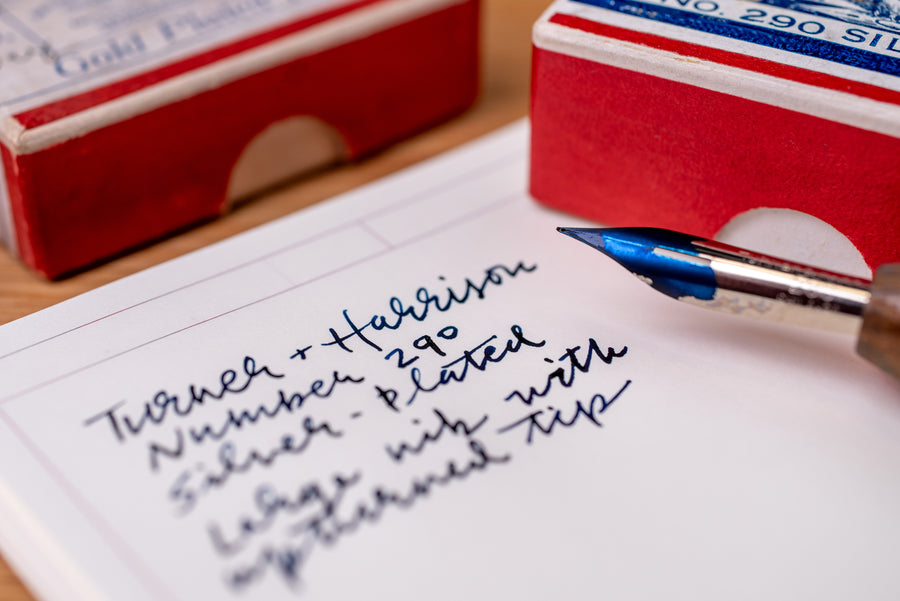 Gold Plated
NO. 290 SIL
Turner + Harrison
Number 290
Silver-plated
Large nib with
upturned tip